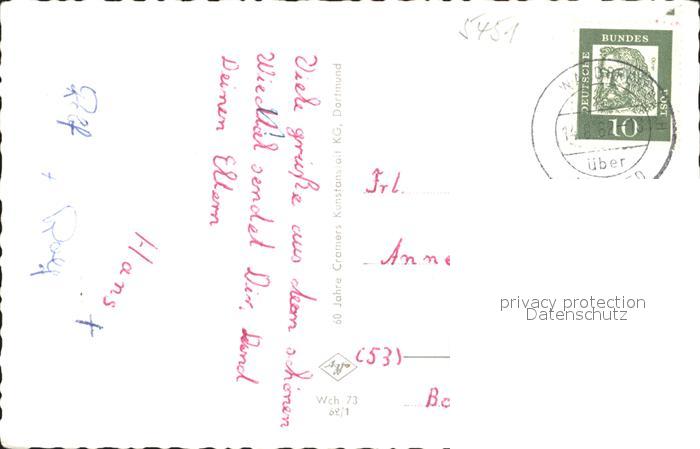 5451
DEUTSCHE
BUNDES
POST
10
über
Viele grüße aus dem schönen
Wiedtal sendet Dir. Und
Deinen Eltern
Hans +
+
60 Jahre Cramers Kunstanstalt KG, Dortmund
Wch 73
62/1
Frl.
Anne
(53)
Bo
privacy protection
Datenschutz